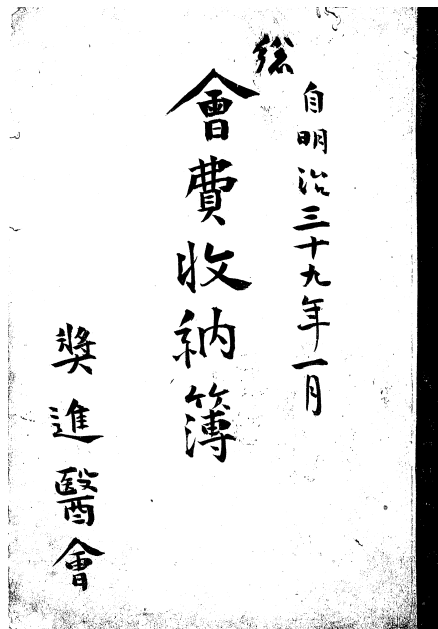 自明治三十九年一月
総
會費收納簿
奬進醫會